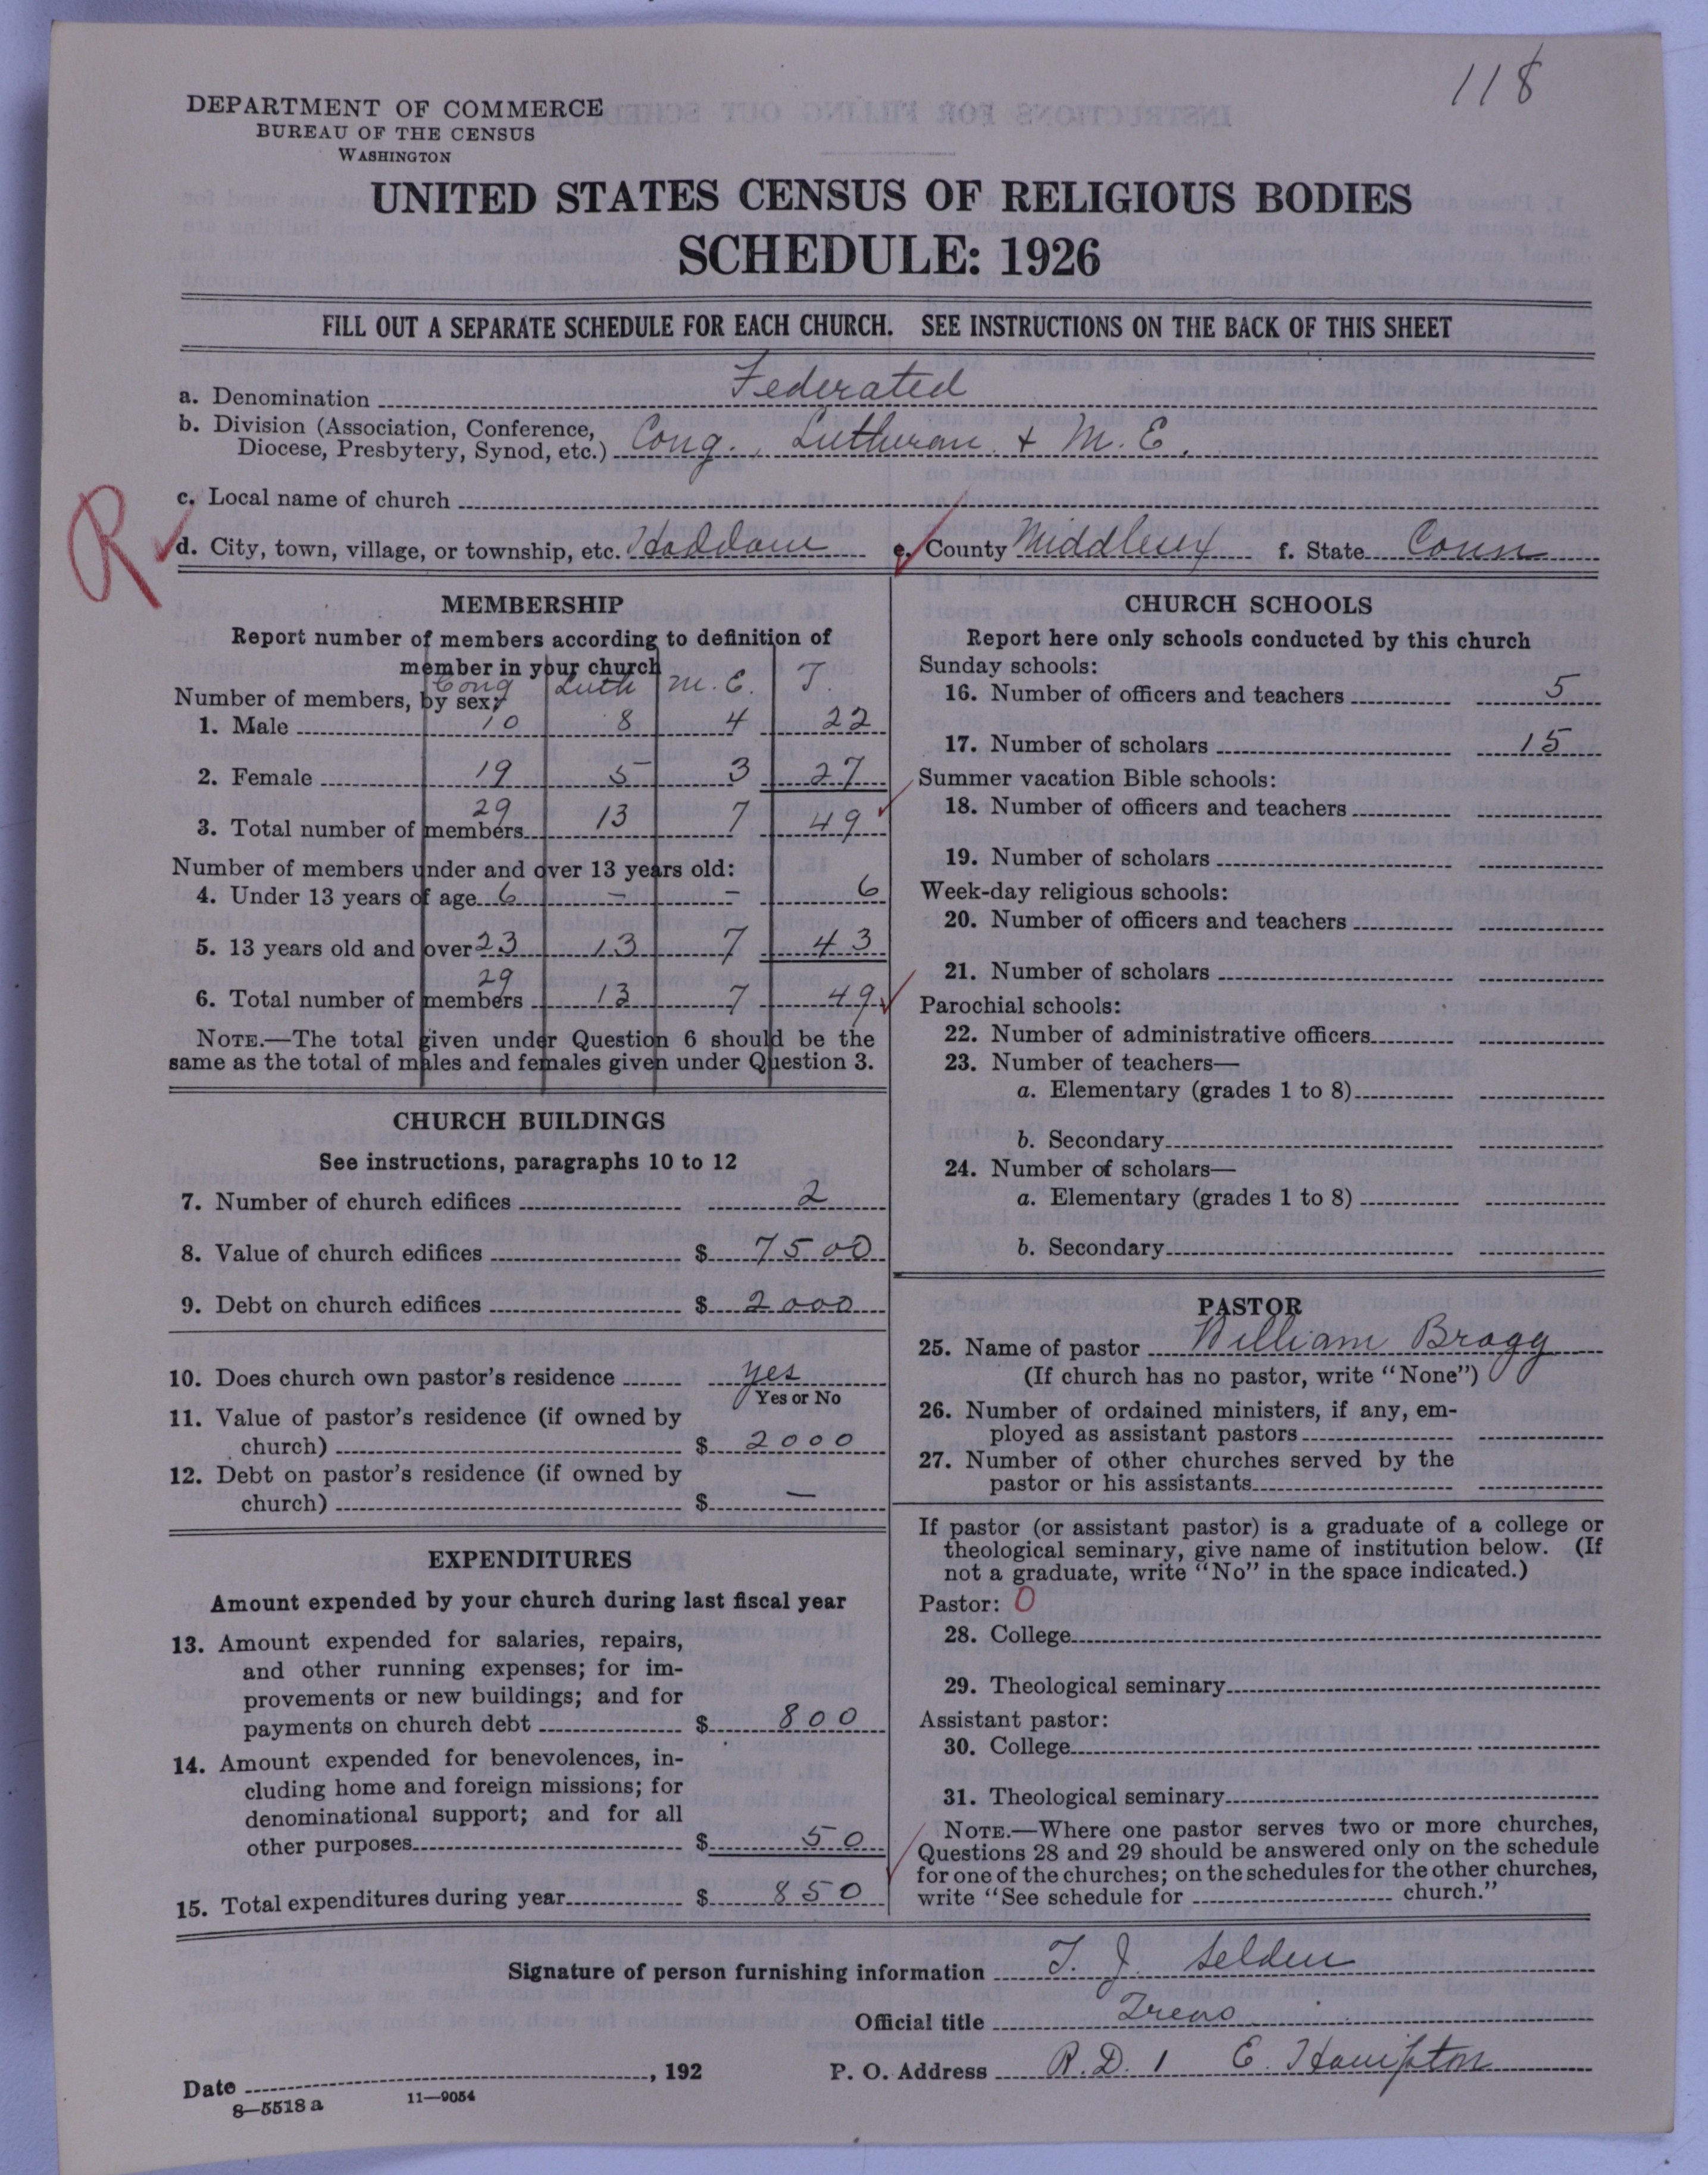 118
DEPARTMENT OF COMMERCE
BUREAU OF THE CENSUS
WASHINGTON
UNITED STATES CENSUS OF RELIGIOUS BODIES
SCHEDULE: 1926
FILL OUT A SEPARATE SCHEDULE FOR EACH CHURCH. SEE INSTRUCTIONS ON THE BACK OF THIS SHEET
a. Denomination Federated
b. Division (Association, Conference, Diocese, Presbytery, Synod, etc.) Cong., Lutheran & M. E.
c. Local name of church
R
d. City, town, village, or township, etc. Haddam e. County Middlesex f. State Conn
MEMBERSHIP
Report number of members according to definition of
member in your church
Cong Luth M. E. T.
Number of members, by sex:
1. Male 10 8 4 22
2. Female 19 5 3 27
3. Total number of members 29 13 7 49
Number of members under and over 13 years old:
4. Under 13 years of age 6 – – 6
5. 13 years old and over 23 13 7 43
6. Total number of members 29 13 7 49
NOTE.—The total given under Question 6 should be the
same as the total of males and females given under Question 3.
CHURCH BUILDINGS
See instructions, paragraphs 10 to 12
7. Number of church edifices 2
8. Value of church edifices $ 7500
9. Debt on church edifices $ 2000
10. Does church own pastor's residence yes
Yes or No
11. Value of pastor's residence (if owned by
church) $ 2000
12. Debt on pastor's residence (if owned by
church) $ —
EXPENDITURES
Amount expended by your church during last fiscal year
13. Amount expended for salaries, repairs,
and other running expenses; for im-
provements or new buildings; and for
payments on church debt $ 800
14. Amount expended for benevolences, in-
cluding home and foreign missions; for
denominational support; and for all
other purposes $ 50
15. Total expenditures during year $ 850
CHURCH SCHOOLS
Report here only schools conducted by this church
Sunday schools:
16. Number of officers and teachers 5
17. Number of scholars 15
Summer vacation Bible schools:
18. Number of officers and teachers
19. Number of scholars
Week-day religious schools:
20. Number of officers and teachers
21. Number of scholars
Parochial schools:
22. Number of administrative officers
23. Number of teachers—
a. Elementary (grades 1 to 8)
b. Secondary
24. Number of scholars—
a. Elementary (grades 1 to 8)
b. Secondary
PASTOR
25. Name of pastor William Bragg
(If church has no pastor, write "None")
26. Number of ordained ministers, if any, em-
ployed as assistant pastors
27. Number of other churches served by the
pastor or his assistants
If pastor (or assistant pastor) is a graduate of a college or
theological seminary, give name of institution below. (If
not a graduate, write "No" in the space indicated.)
Pastor: 0
28. College
29. Theological seminary
Assistant pastor:
30. College
31. Theological seminary
NOTE.—Where one pastor serves two or more churches,
Questions 28 and 29 should be answered only on the schedule
for one of the churches; on the schedules for the other churches,
write "See schedule for church."
Signature of person furnishing information T. J. Selden
Official title Treas
Date , 192 P. O. Address R. D. 1 E. Hampton
8—5518 a 11—9054